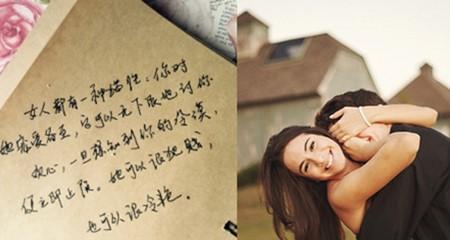 女人都有一种猫性：你对
她宠爱备至，她可以无下限地讨你
欢心，一旦感知到你的冷漠，
便立即止损。她可以很犯贱，
也可以很冷艳。